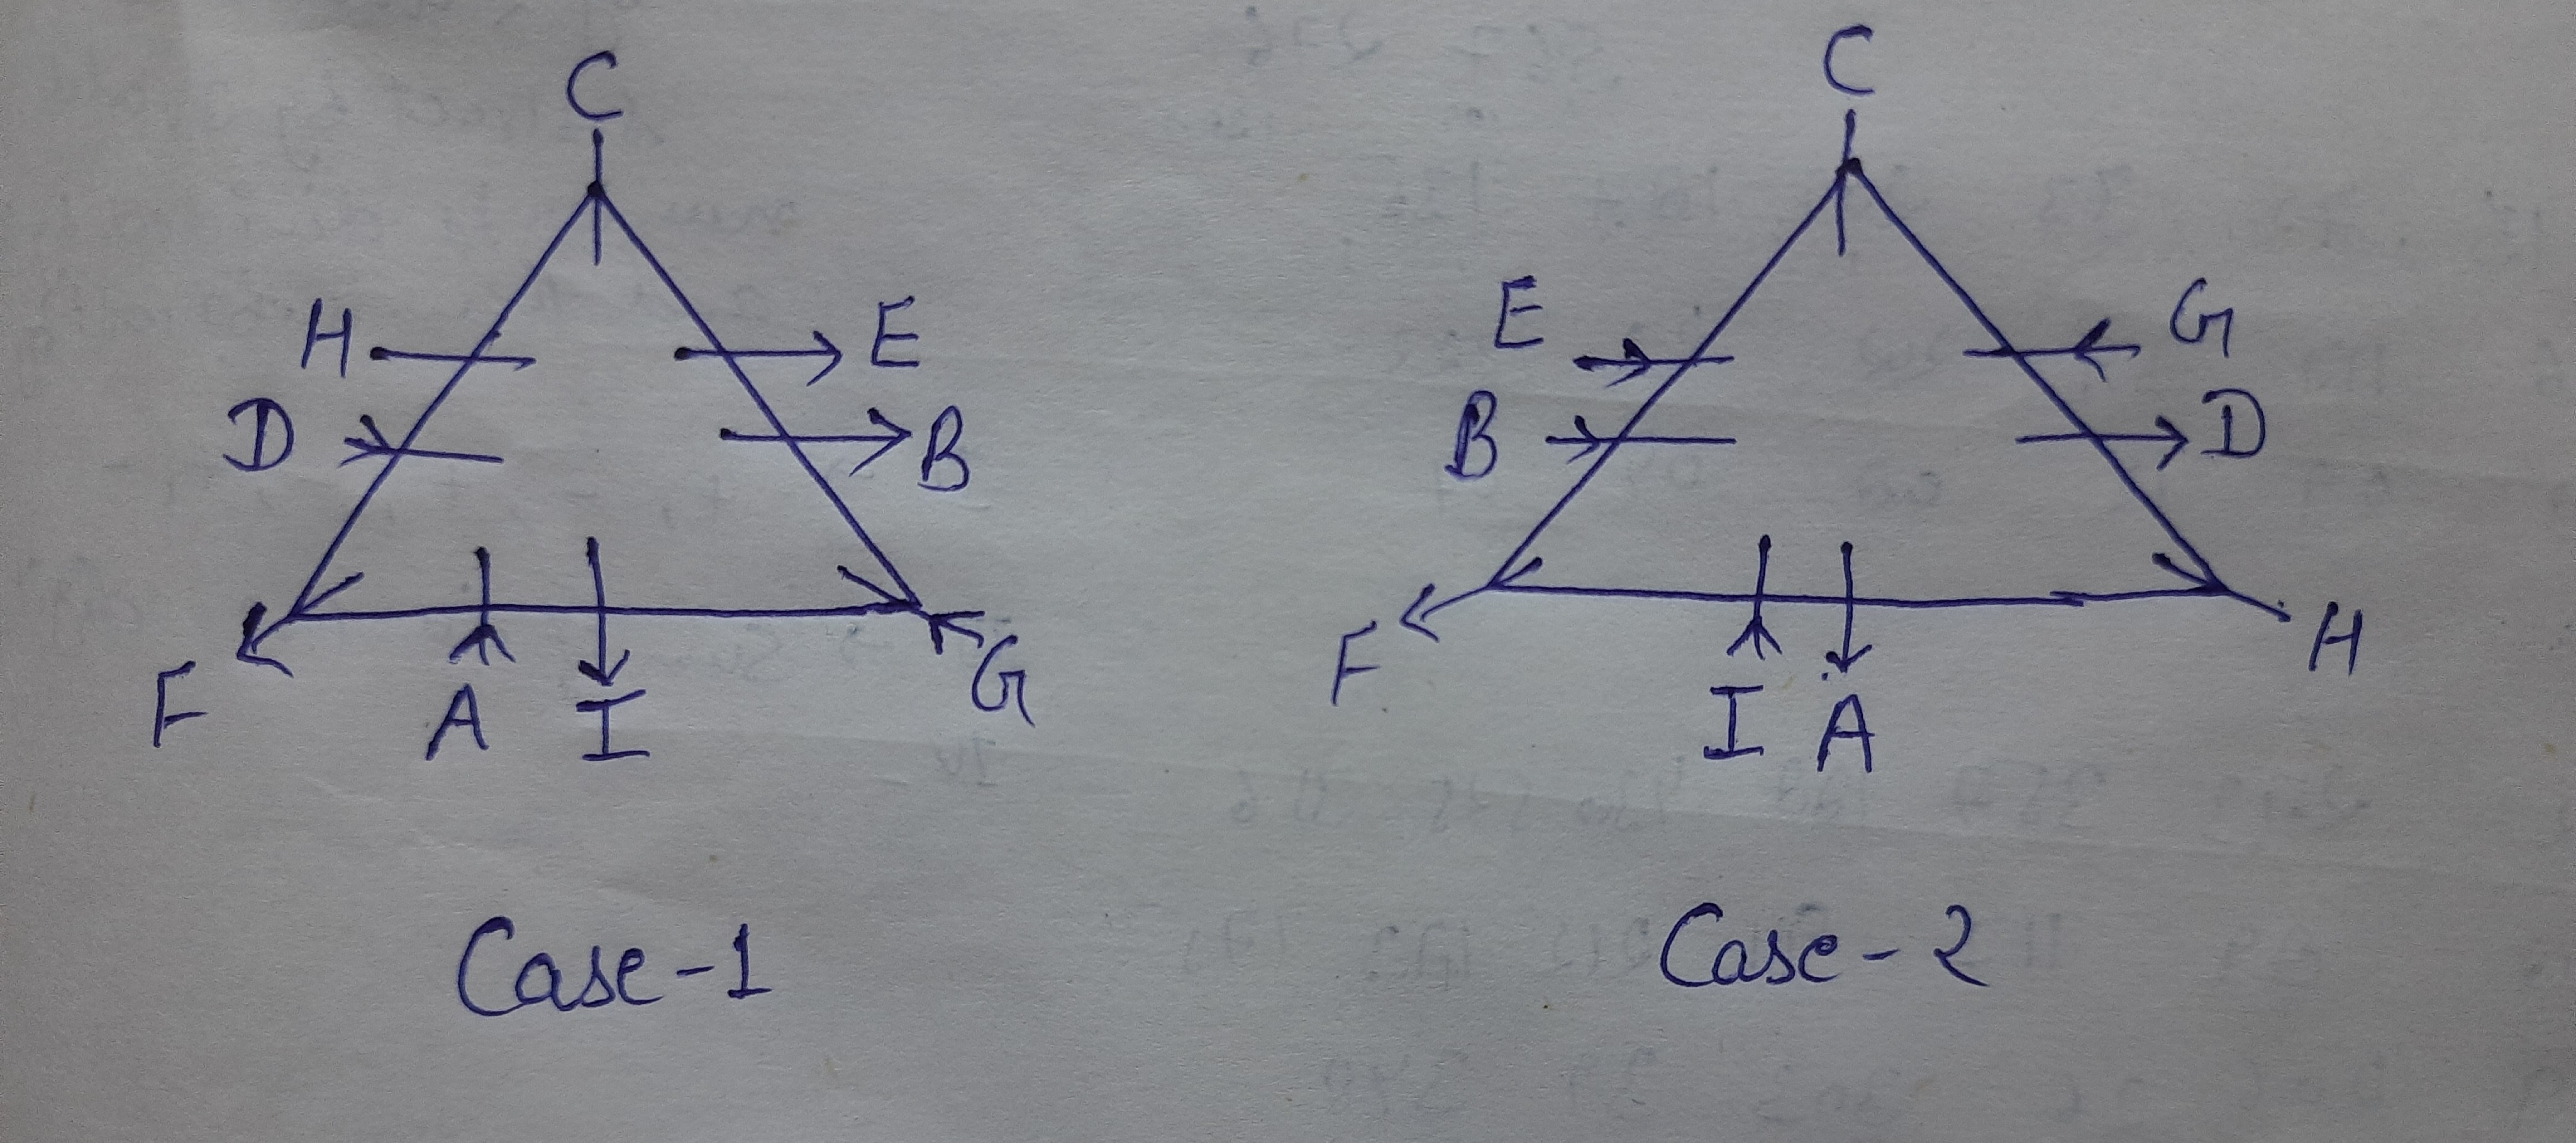 C
C
H
E
E
G
D
B
B
D
F
A
I
G
F
I
A
H
Case-1
Case-2